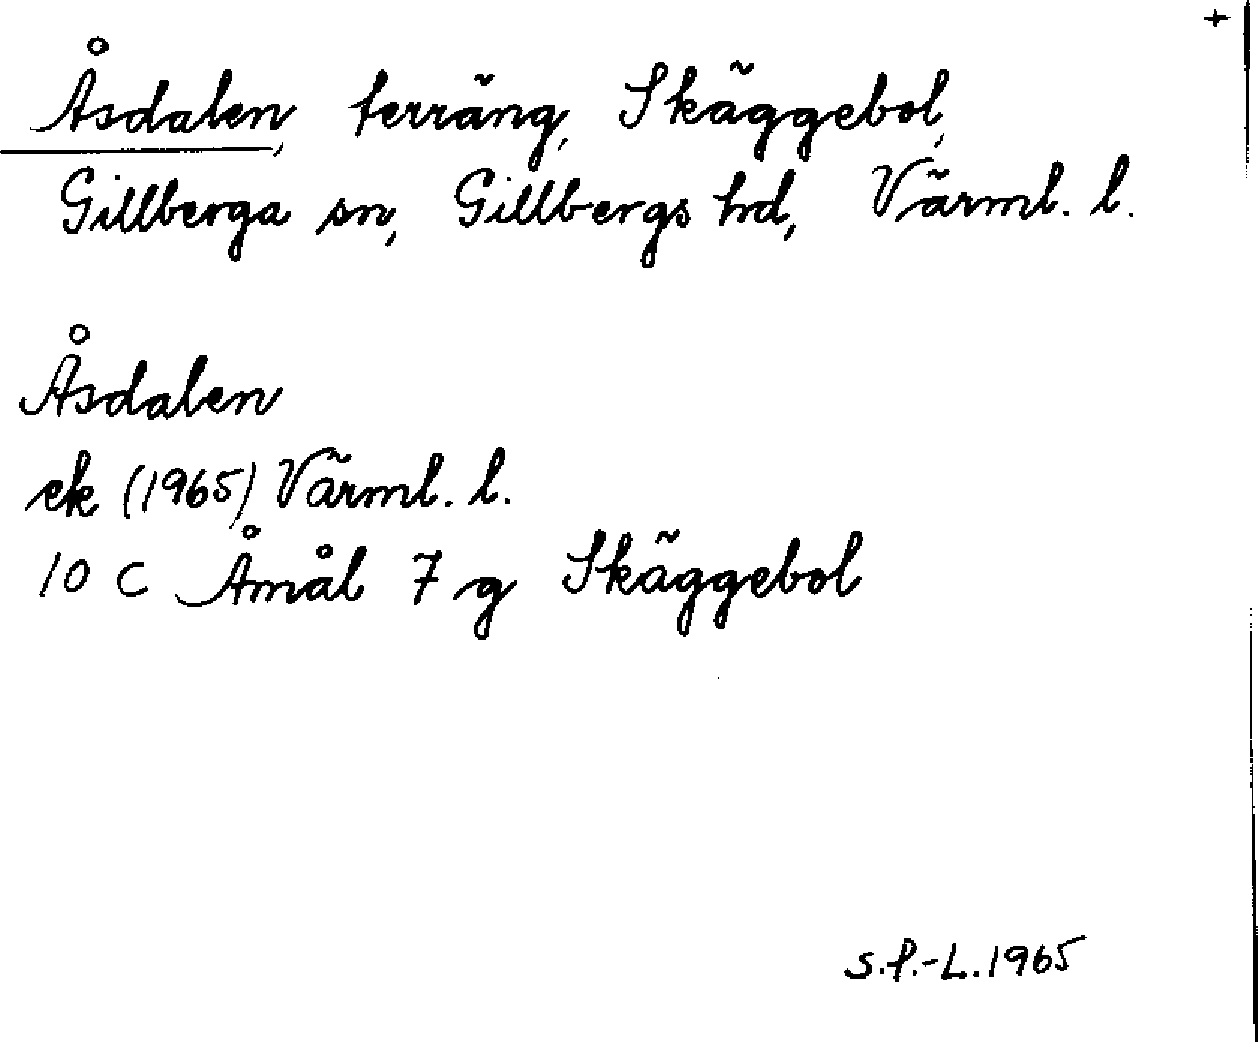 +
Åsdalen, terräng, Skäggebol,
Gillberga sn, Gillbergs hd, Värml. l.
Åsdalen
ek (1965) Värml. l.
10 C Åmål 7 g Skäggebol
S.P.-L. 1965